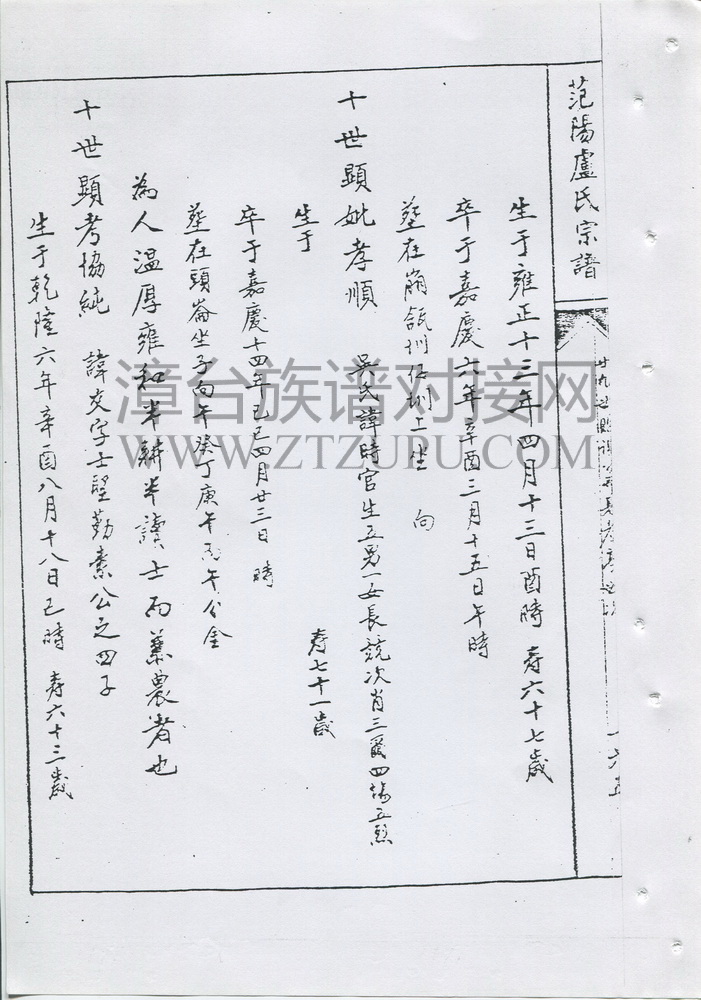 范陽盧氏宗譜
生于雍正十三年四月十三日酉時 壽六十七歲
卒于嘉慶六年辛酉三月十五日午時
塟在 圳 圳上坐 向
十世顯妣孝順 吳氏諱時官生五男一女長 次肖三 四 五
生于 壽七十一歲
卒于嘉慶十四年己巳四月廿三日 時
塟在頭崙坐子向午癸丁庚午 午分金
為人温厚雍和半耕半讀士而兼農者也
十世顯考協純 諱交字士 勤素公之四子
生于乾隆六年辛酉八月十八日巳時 壽六十三歲
漳台族谱对接网
WWW.ZTZUPU.COM